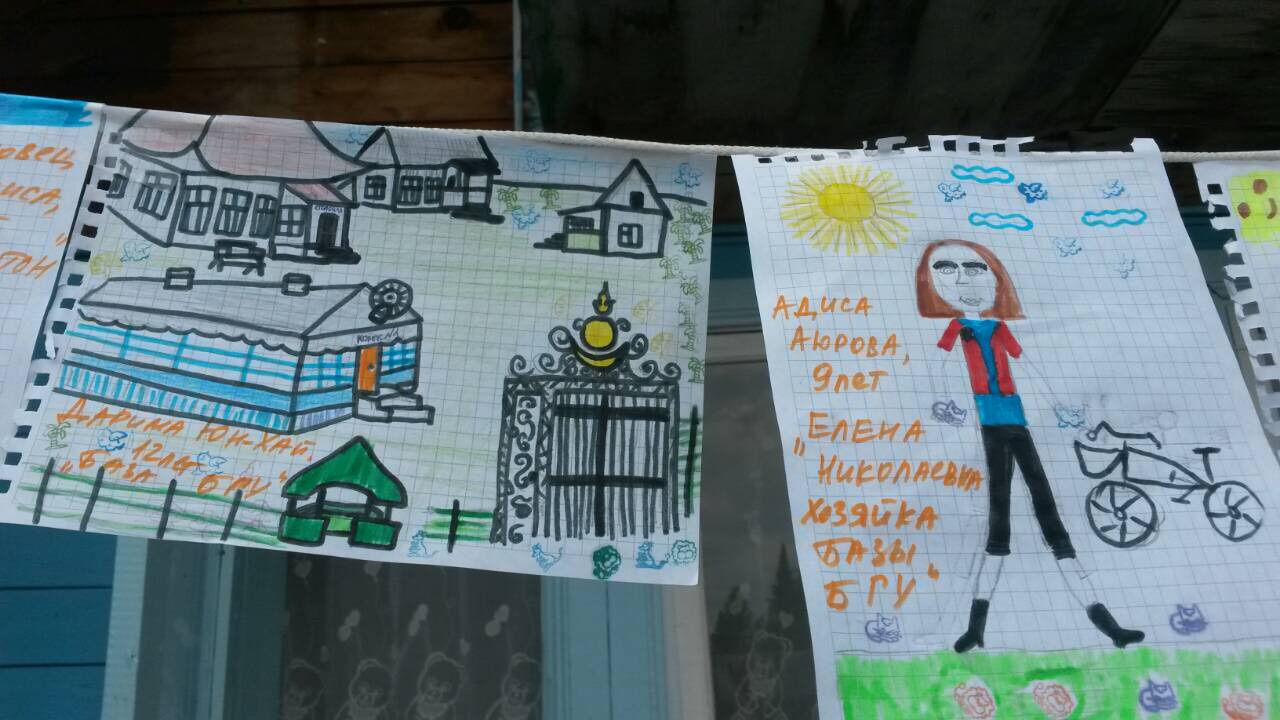 ОВЕЦ
ИСА,
ТОН"
ДАРИМА ЮН-ХАЙ.
12 лет
"БАЗА БГУ"
АДИСА
АЮРОВА,
9 лет
"ЕЛЕНА
НИКОЛАЕВНА
ХОЗЯЙКА
БАЗЫ
БГУ"